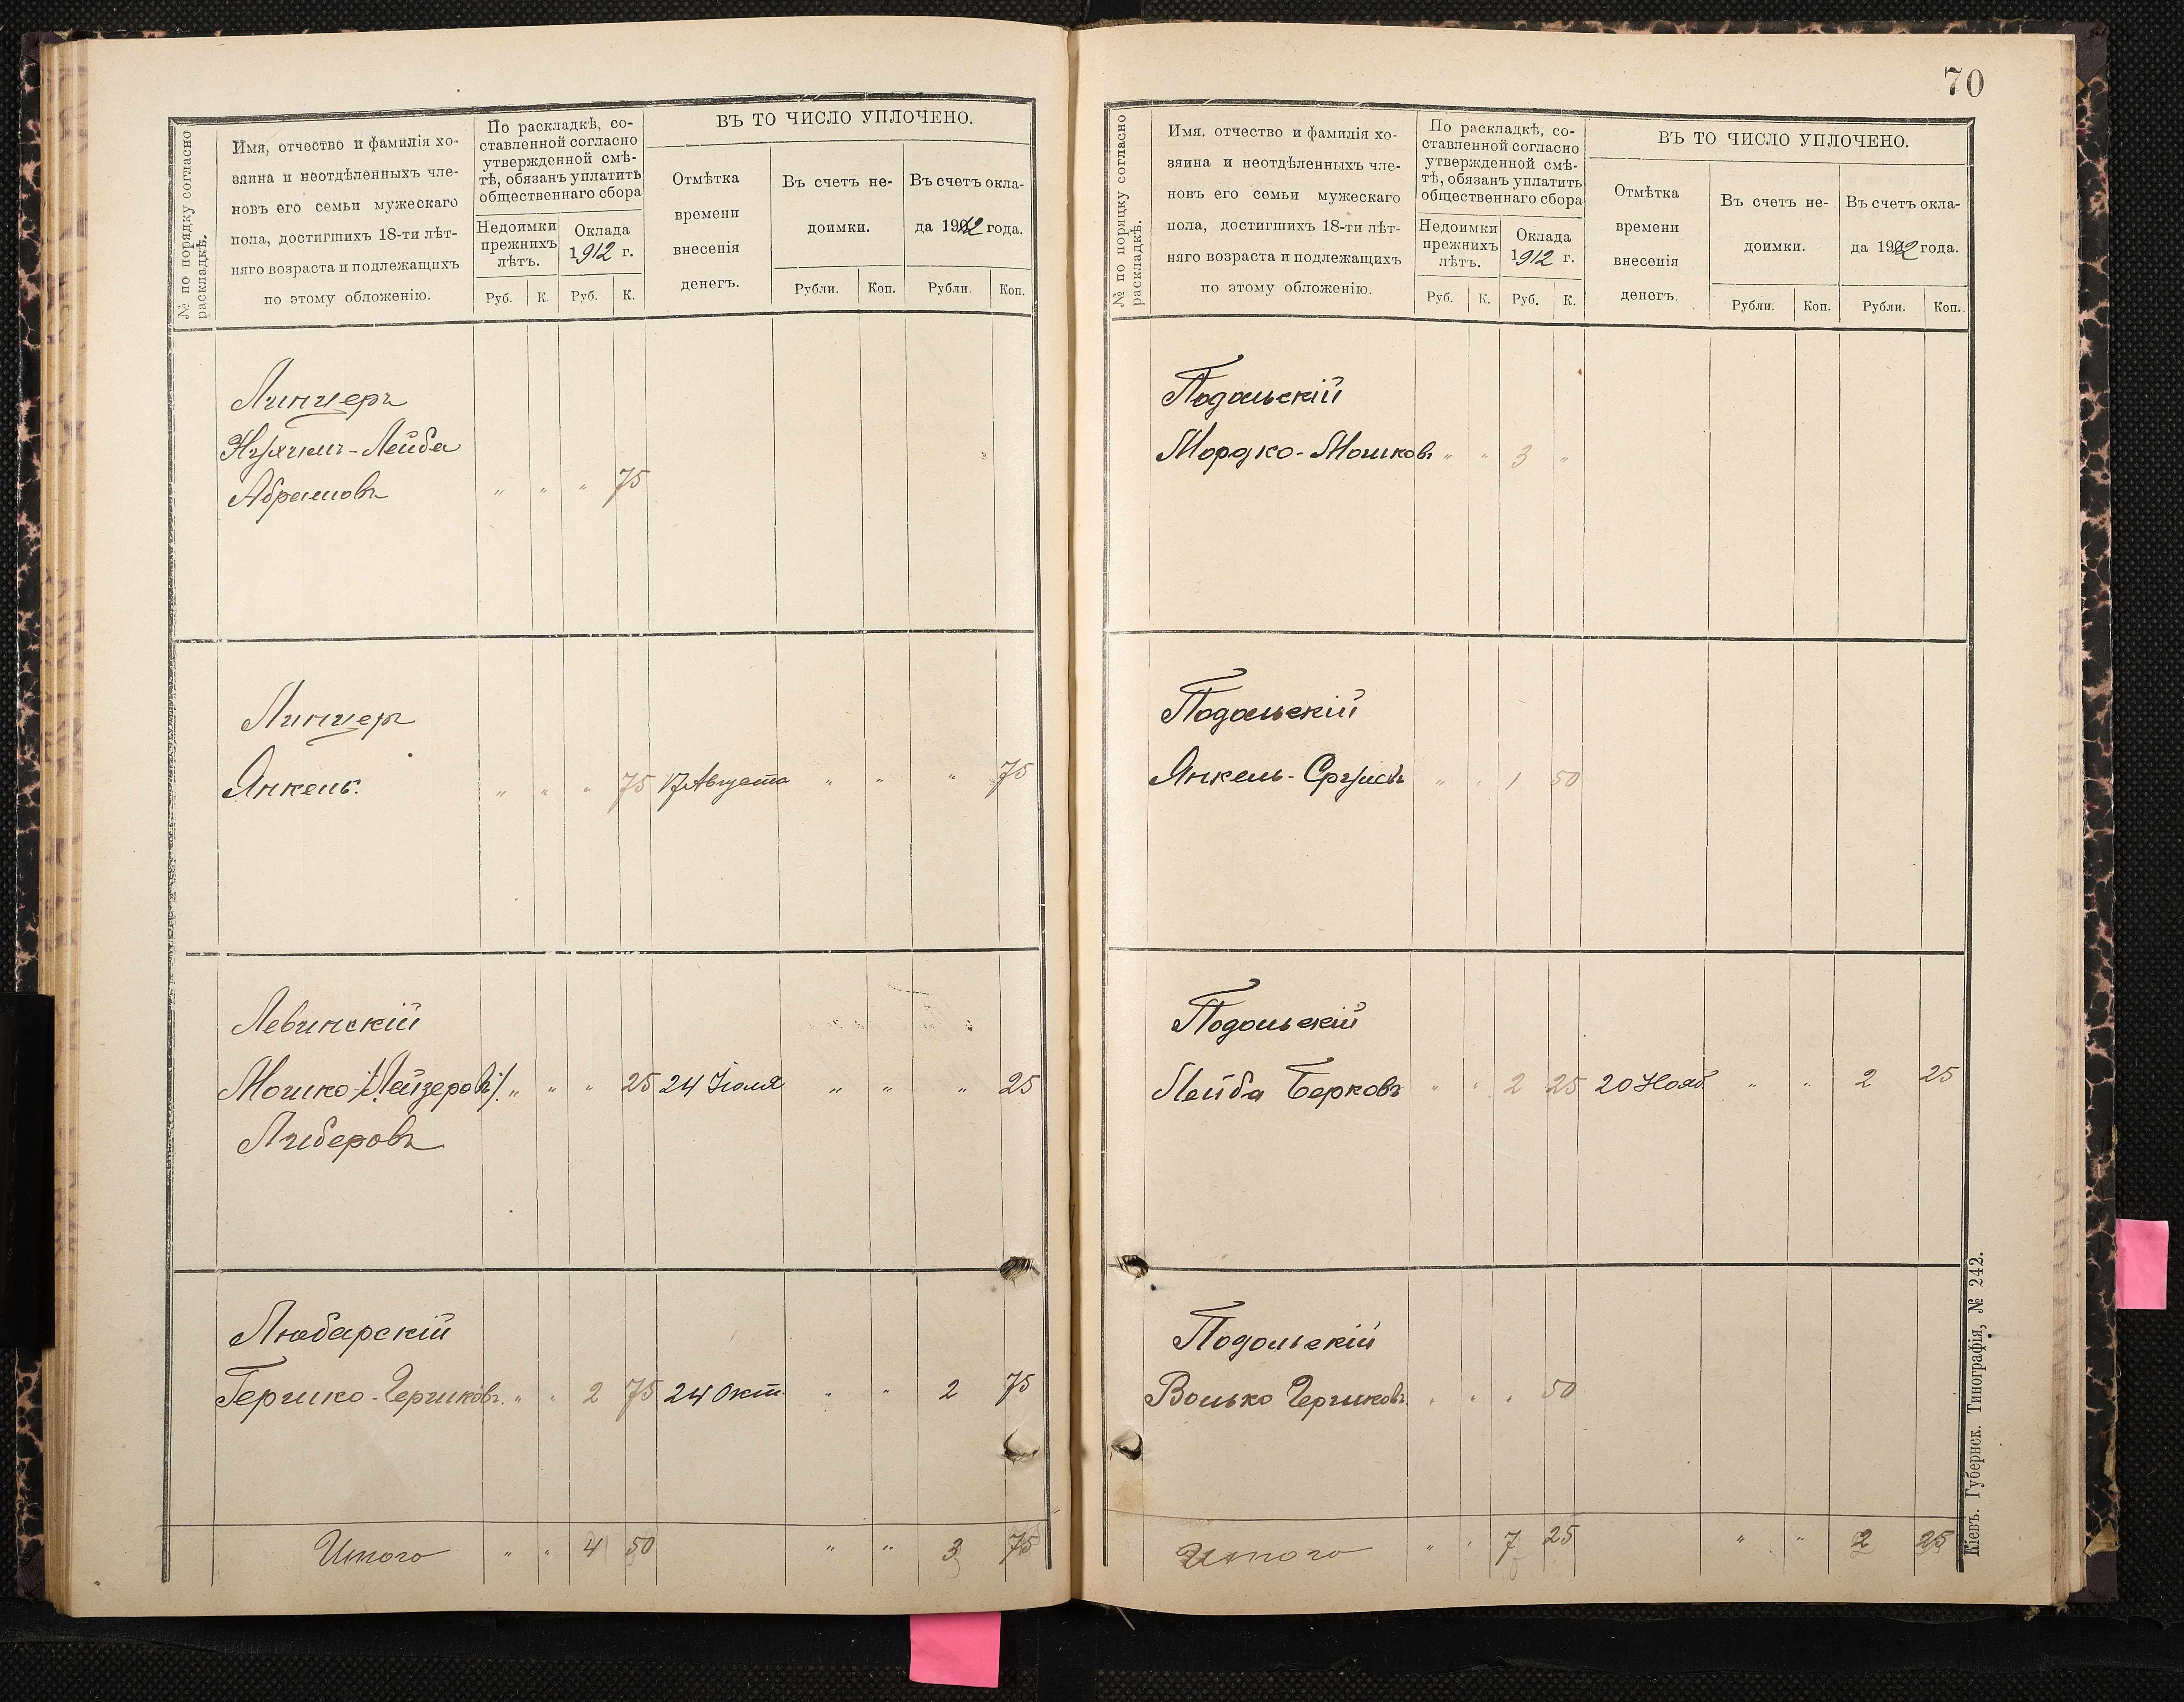 № по порядку согласно
раскладкѣ.
Имя, отчество и фамилія хо-
зяина и неотдѣленныхъ чле-
новъ его семьи мужескаго
пола, достигшихъ 18-ти лѣт-
няго возраста и подлежащихъ
по этому обложенію.
По раскладкѣ, со-
ставленной согласно
утвержденной смѣ-
тѣ, обязанъ уплатить
общественнаго сбора
Недоимки
прежнихъ
лѣтъ.
Оклада
1912 г.
Руб. К. Руб. К.
ВЪ ТО ЧИСЛО УПЛОЧЕНО.
Отмѣтка
времени
внесенія
денегъ.
Въ счетъ не-
доимки.
Въ счетъ окла-
да 1912 года.
Рубли. Коп. Рубли. Коп.
Линцеръ
Нухимъ-Лейба
Абрамовъ " " " 75
Линцеръ
Янкель. " " " 75 17 Августа " " " 75
Левинскій
Мошко /Лейзеровъ/. " " " 25 24 Іюля " " " 25
Либеровъ
Любарскій
Гершко-Гершковъ. " " 2 75 24 Окт. " " 2 75
Итого " " 4 50 " " 3 75
70
№ по порядку согласно
раскладкѣ.
Имя, отчество и фамилія хо-
зяина и неотдѣленныхъ чле-
новъ его семьи мужескаго
пола, достигшихъ 18-ти лѣт-
няго возраста и подлежащихъ
по этому обложенію.
По раскладкѣ, со-
ставленной согласно
утвержденной смѣ-
тѣ, обязанъ уплатить
общественнаго сбора
Недоимки
прежнихъ
лѣтъ.
Оклада
1912 г.
Руб. К. Руб. К.
ВЪ ТО ЧИСЛО УПЛОЧЕНО.
Отмѣтка
времени
внесенія
денегъ.
Въ счетъ не-
доимки.
Въ счетъ окла-
да 1912 года.
Рубли. Коп. Рубли. Коп.
Подольскій
Мордко-Мошковъ " " 3 "
Подольскій
Янкель-Срулевъ " " 1 50
Подольскій
Лейба Берковъ " " 2 25 20 Нояб. " " 2 25
Подольскій
Волько Гершковъ. " " " 50
Итого " " 7 25 " " 2 25
Кіевъ. Губернск. Типографія, № 242.